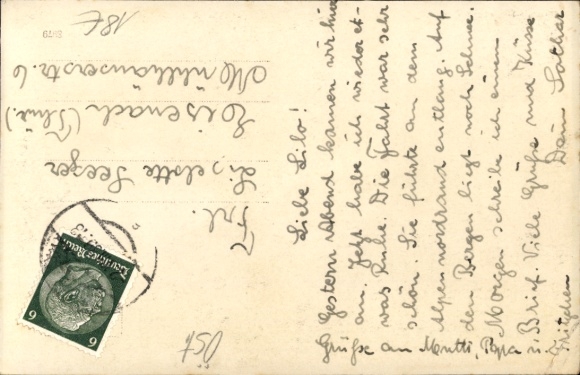 Liebe Lilo!
Gestern Abend kamen wir hier
an. Jetzt habe ich wieder et-
was Ruhe. Die Fahrt war sehr
schön. Sie führte an dem
Alpennordrand entlang. Auf
den Bergen liegt noch Schnee.
Morgen schreibe ich einen
Brief. Viele Grüße und Küsse
Dein Lothar
Grüße an Mutti, Papa u.
Fritzchen
Frl.
Liselotte Seeger
Eisenach (Thür.)
Mühlhäuserstr. 6
Deutsches Reich
6 6
Öst
18t